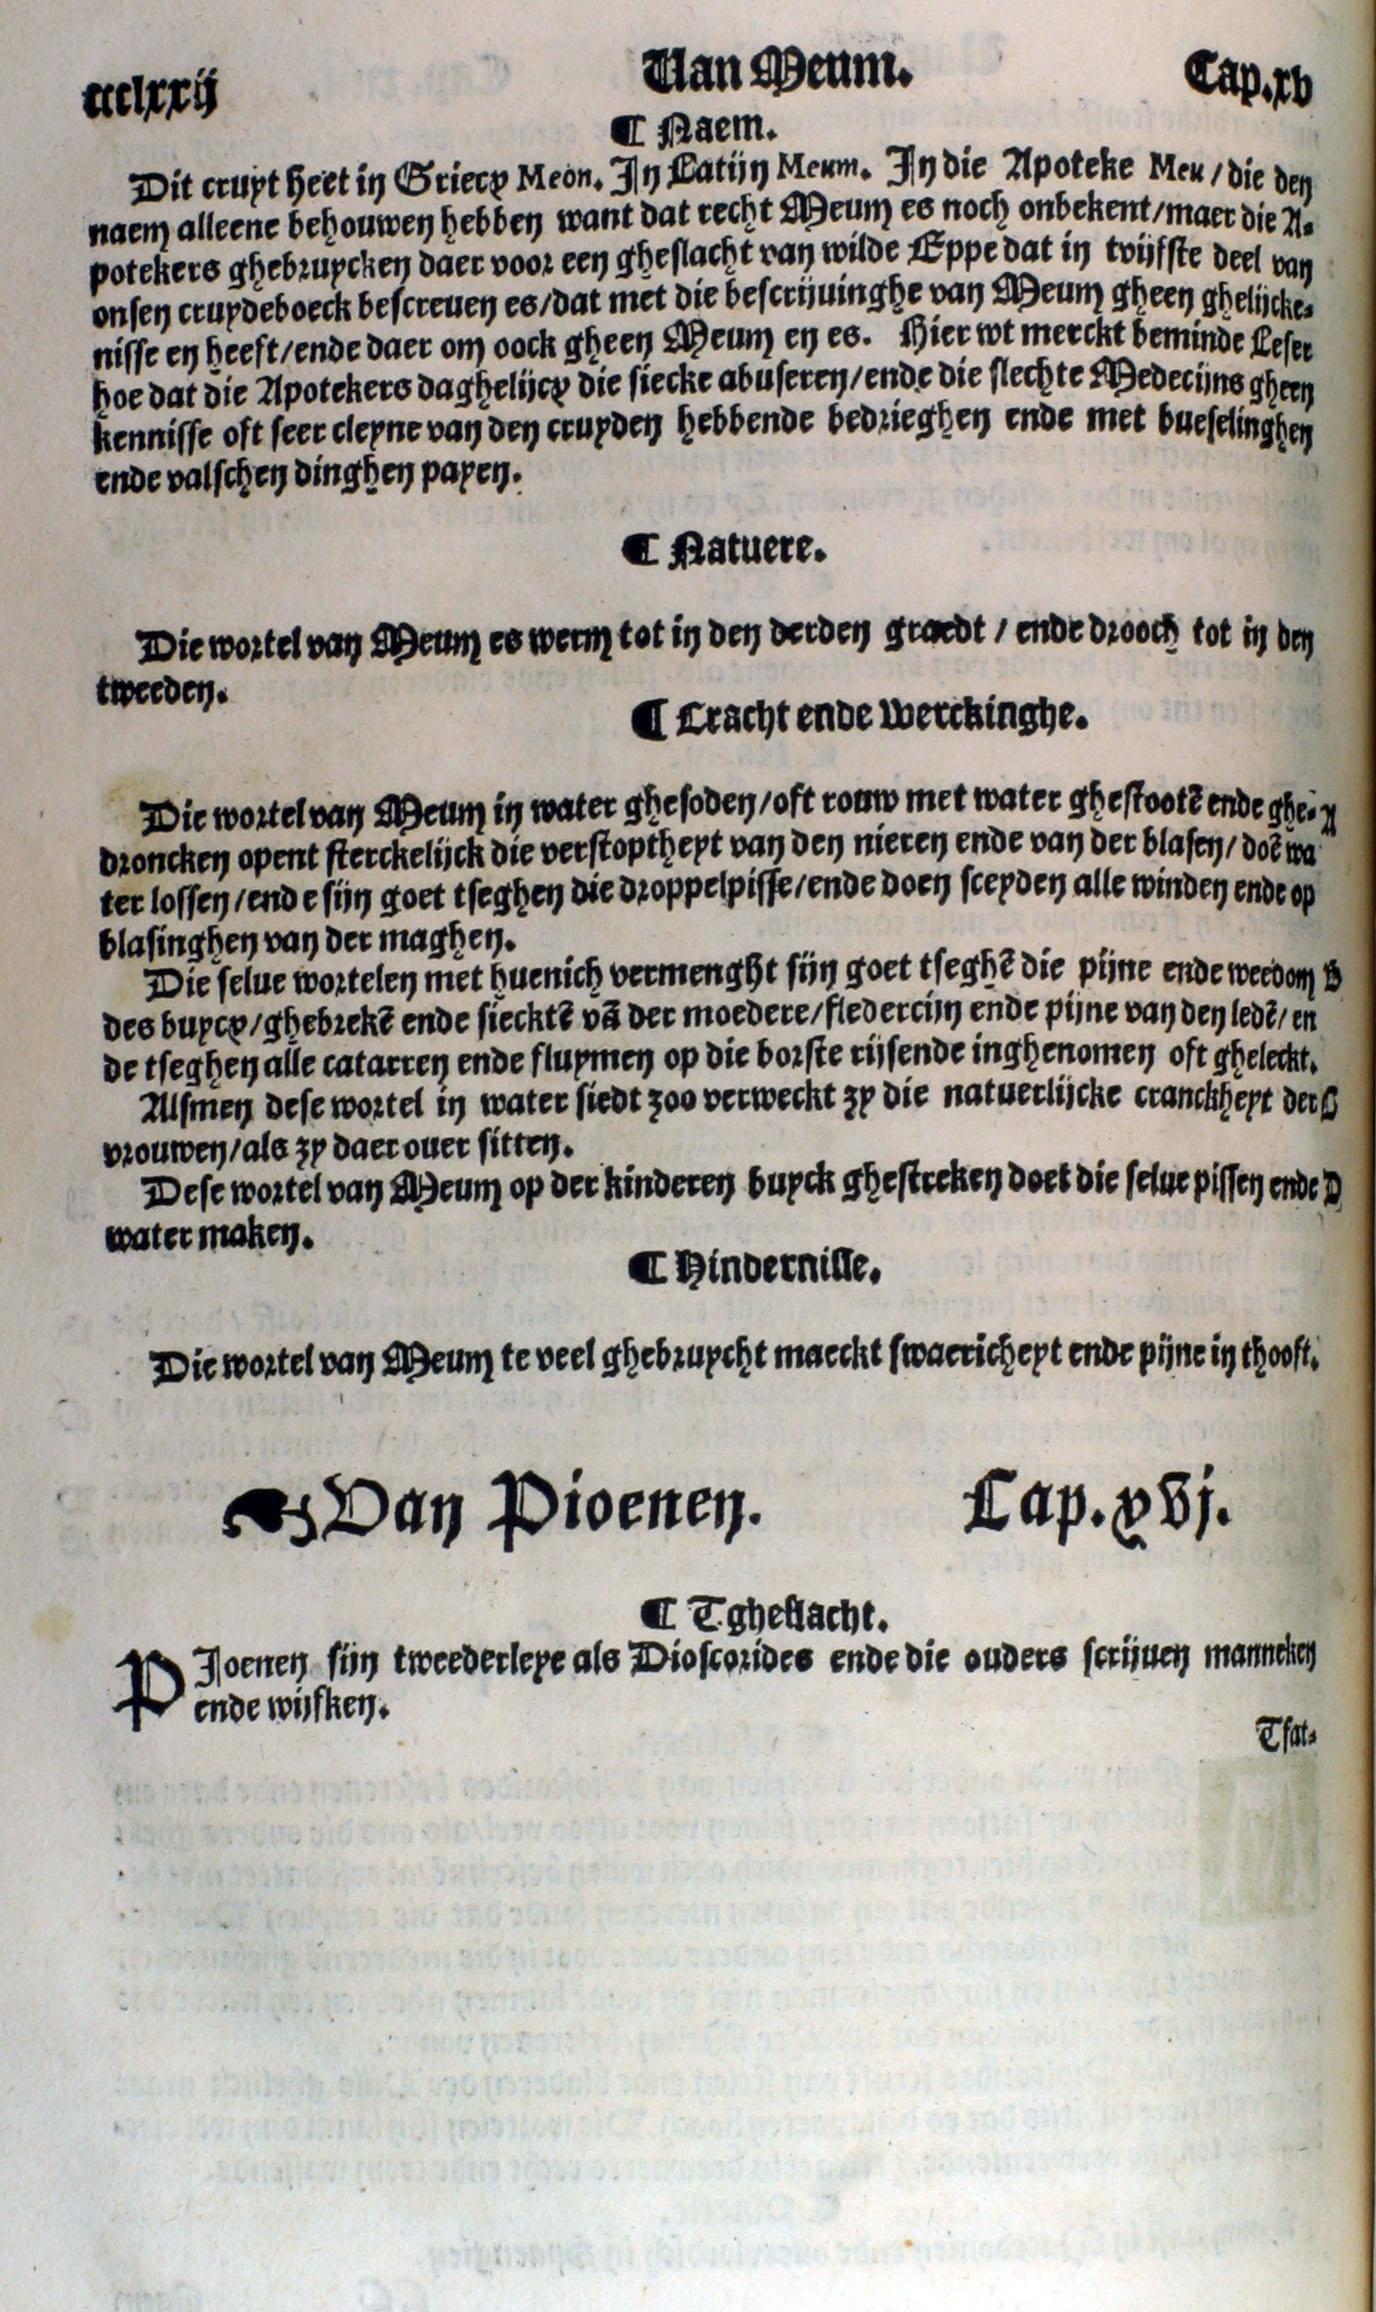 ccclxxij Van Meum. Cap.xv
¶ Naem.
Dit cruyt heet in Griecx Meon. In Latijn Meum. In die Apoteke Meu/die den
naem alleene behouwen hebben want dat recht Meum es noch onbekent/maer die A-
potekers ghebruycken daer voor een gheslacht van wilde Eppe dat in tvijfste deel van
onsen cruydeboeck bescreuen es/dat met die bescrijuinghe van Meum gheen ghelijcke-
nisse en heeft/ende daer om oock gheen Meum en es. Hier wt merckt beminde Leser
hoe dat die Apotekers daghelijcx die siecke abuseren/ende die slechte Medecijns gheen
kennisse oft seer cleyne van den cruyden hebbende bedrieghen ende met bueselinghen
ende valschen dinghen payen.
¶ Natuere.
Die wortel van Meum es werm tot in den derden graedt / ende drooch tot in den
tweeden.
¶ Cracht ende werckinghe.
Die wortel van Meum in water ghesoden/oft rouw met water ghestootē ende ghe- A
droncken opent sterckelijck die verstoptheyt van den nieren ende van der blasen/doē wa
ter lossen/ende sijn goet tseghen die droppelpisse/ende doen sceyden alle winden ende op
blasinghen van der maghen.
Die selue wortelen met huenich vermenght sijn goet tseghē die pijne ende weedom B
des buycx/ghebrekē ende siecktē vā der moedere/fledercijn ende pijne van den ledē/en
de tseghen alle catarren ende fluymen op die borste rijsende inghenomen oft gheleckt.
Alsmen dese wortel in water siedt zoo verweckt zy die natuerlijcke cranckheyt der C
vrouwen/als zy daer ouer sitten.
Dese wortel van Meum op der kinderen buyck ghestreken doet die selue pissen ende D
water maken.
¶ Hindernisse.
Die wortel van Meum te veel ghebruycht maeckt swaericheyt ende pijne in thooft.
☙ Van Pioenen. Cap.xvj.
¶ Tgheslacht.
PIoenen sijn tweederleye als Dioscorides ende die ouders scrijuen manneken
ende wijfken.
Tsat-